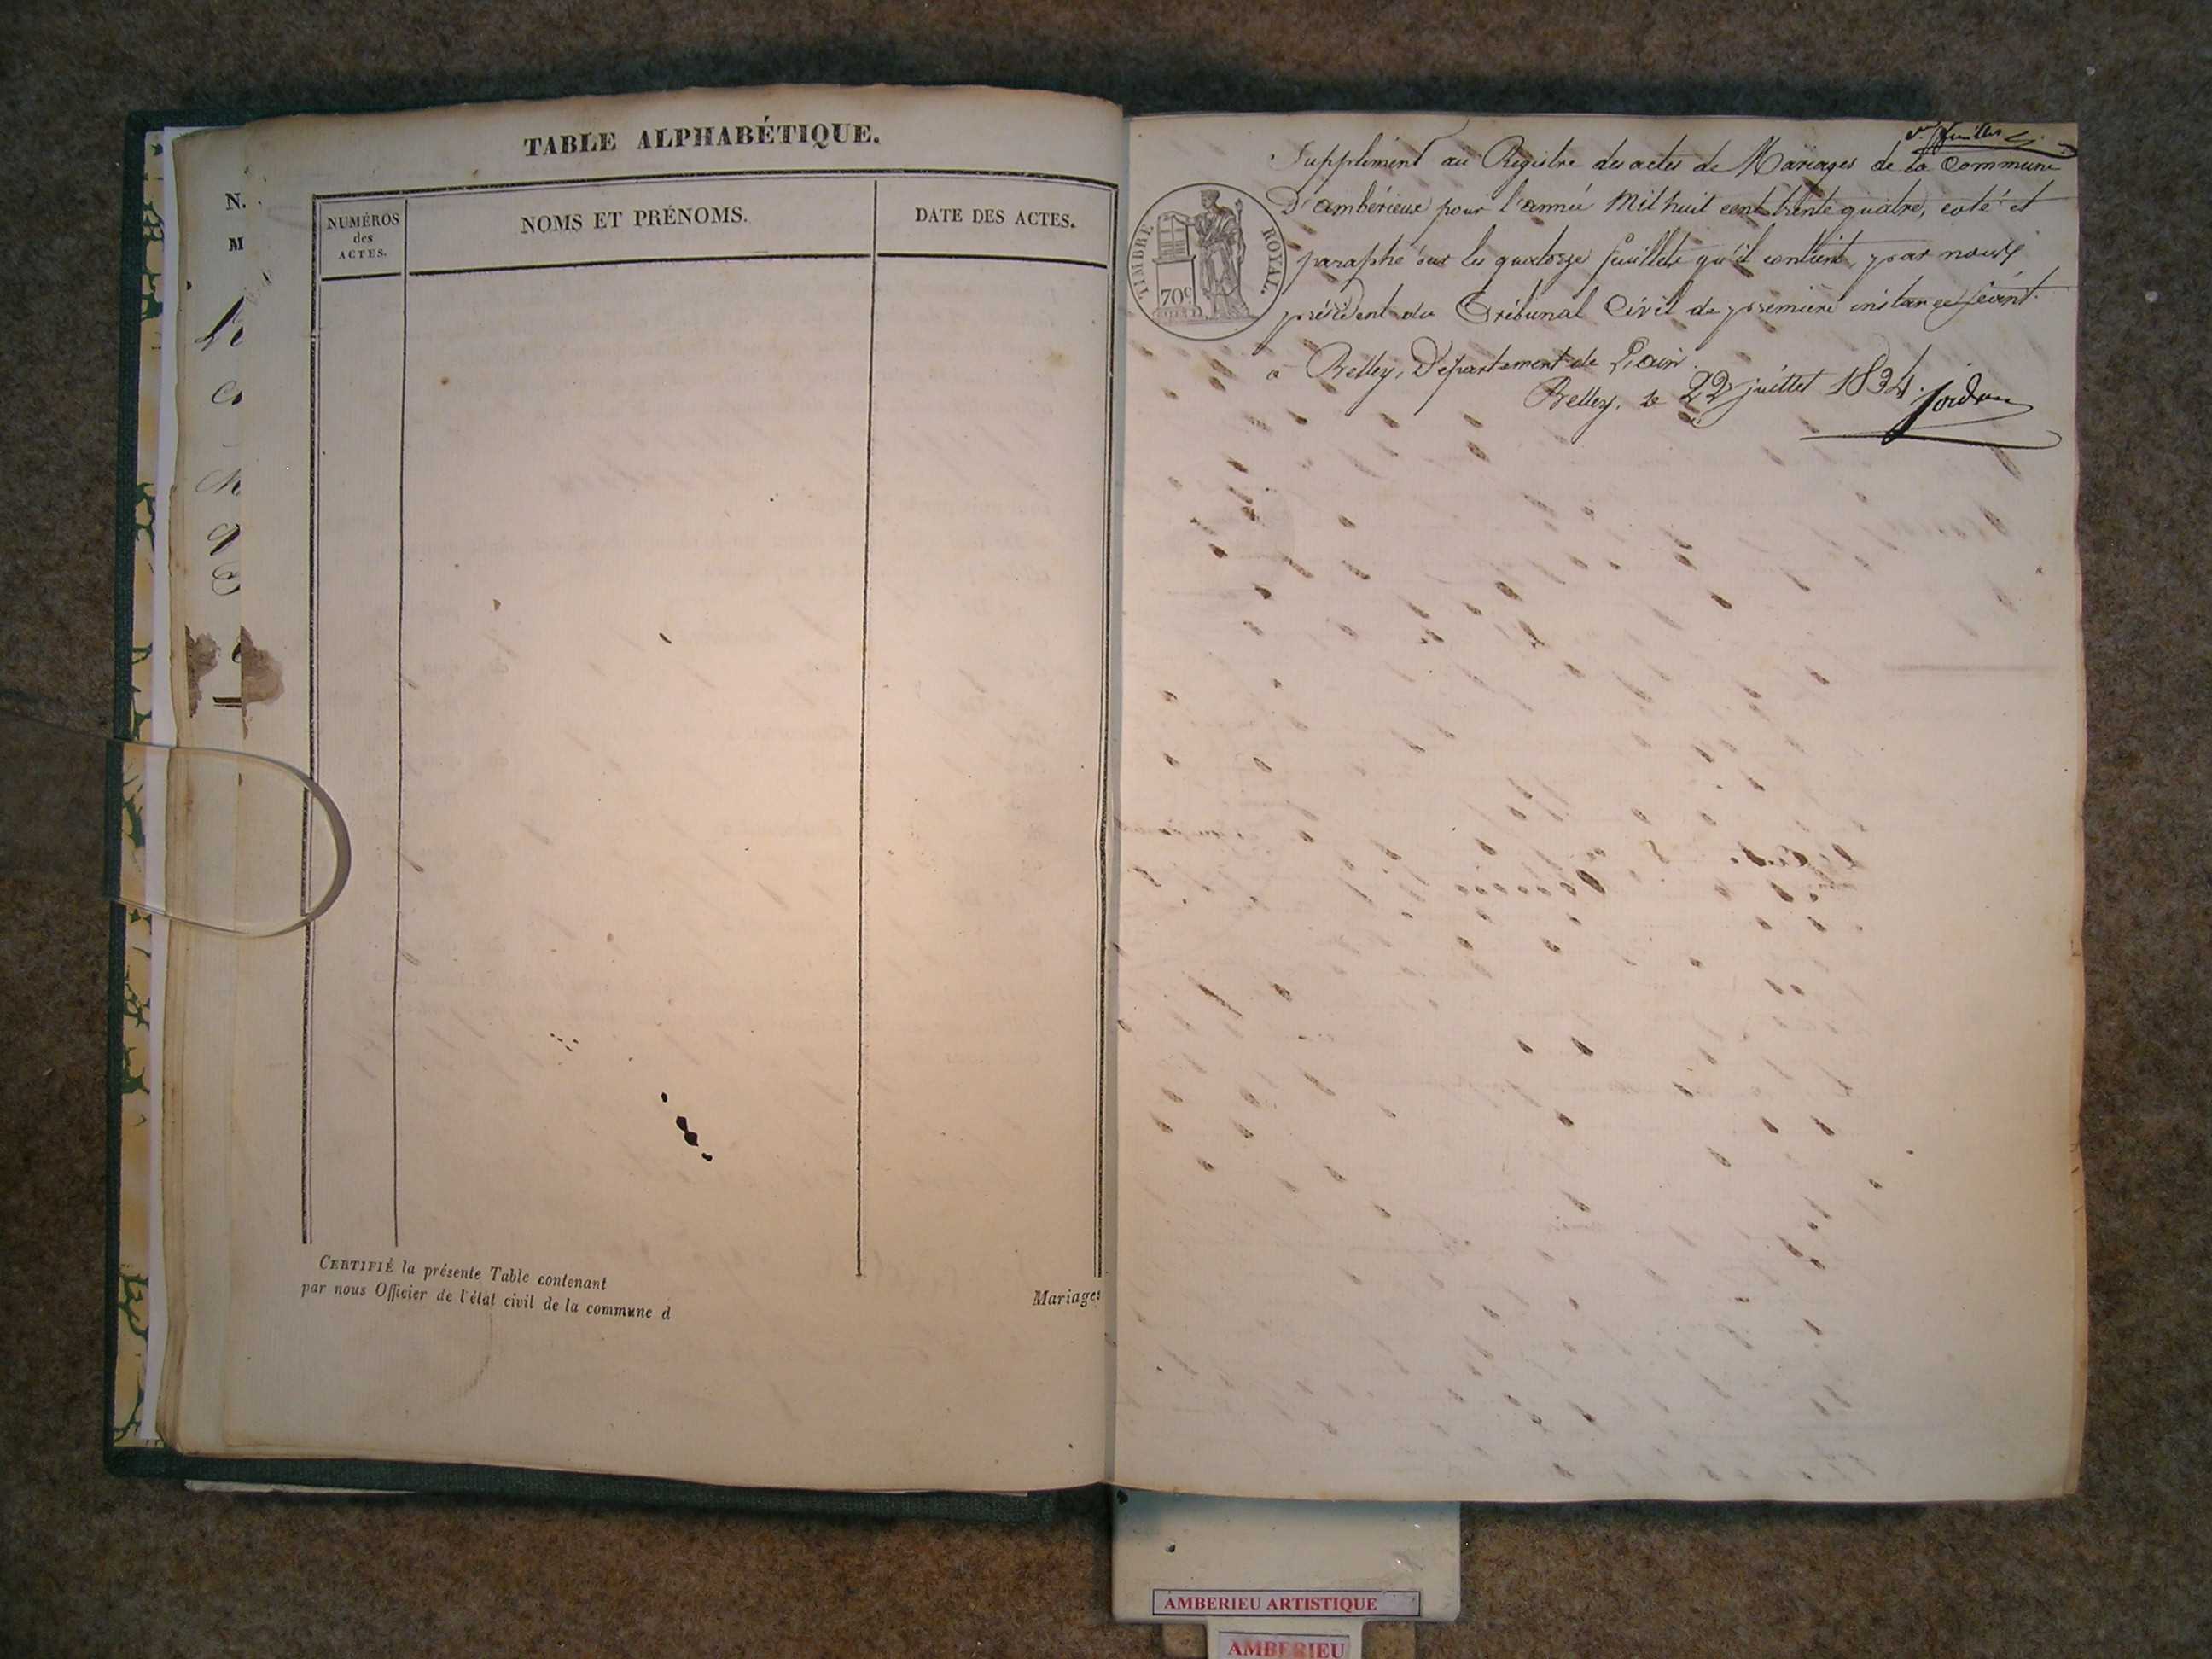 TABLE ALPHABÉTIQUE.
N.
M
NUMÉROS
des
ACTES.
NOMS ET PRÉNOMS.
DATE DES ACTES.
CERTIFIÉ la présente Table contenant
Mariages
par nous Officier de l'état civil de la commune d
feuillet
Supplément au Registre des actes de Mariages de la Commune
D'ambérieux pour l'année Mil huit cent trente quatre, coté et
paraphé sur les quatorze feuillets qu'il contient, par nous
président du Tribunal Civil de première instance séant
à Belley, Département de L'ain.
Belley, le 22 juillet 1834.
TIMBRE ROYAL.
70c
AMBERIEU ARTISTIQUE
AMBERIEU